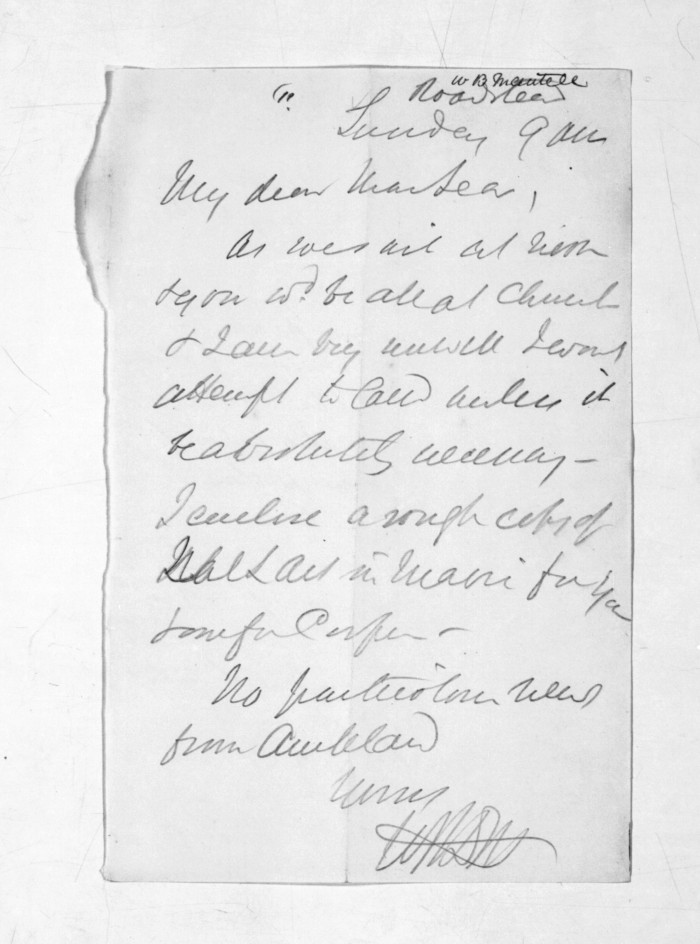 W B Mantell
Roadstead
Sunday 9 am
My dear MacLean,
As we sail at noon
& you wd. be all at Church
& I am very unwell I wont
attempt to land unless it
be absolutely necessary —
I enclose a rough copy of
N L Act in Maori for you
& one for Cooper —
No particular news
from Auckland
Yours
WBDM